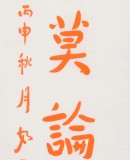 莫論
丙申秋月